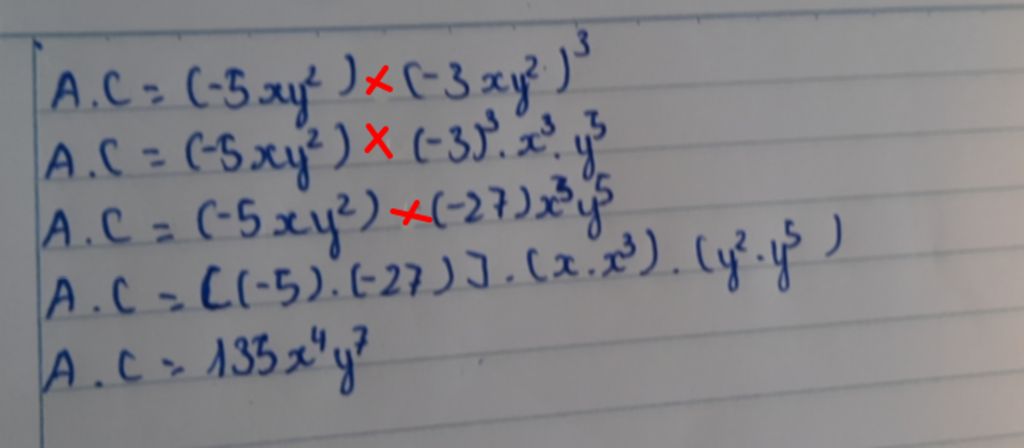 A.C = (-5xy²) × (-3xy²)³
A.C = (-5xy²) × (-3)³. x³. y⁵
A.C = (-5xy²) × (-27)x³y⁵
A.C = [(-5).(-27)].(x.x³).(y².y⁵)
A.C = 135x⁴y⁷